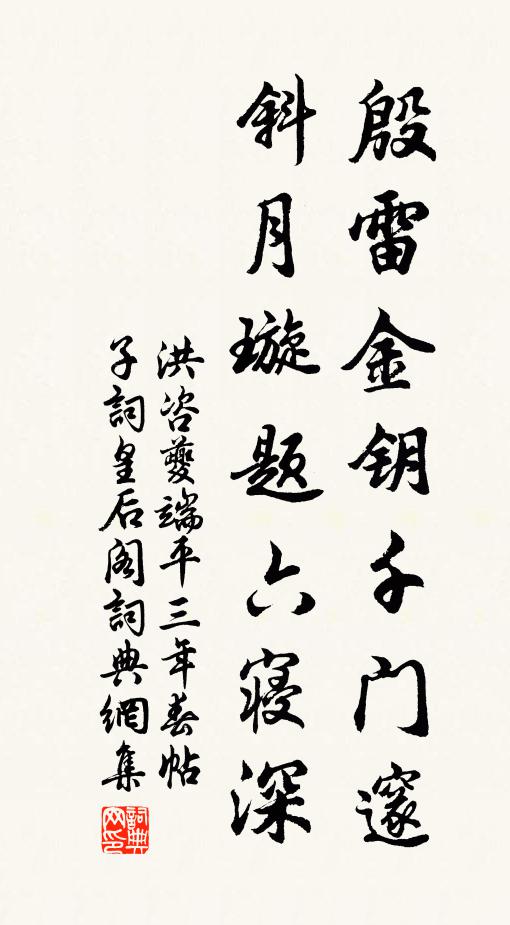 殷雷金钥千门邃
斜月璇题六寝深
洪咨夔端平三年春帖
子詞皇后阁詞典網集
詞典网印